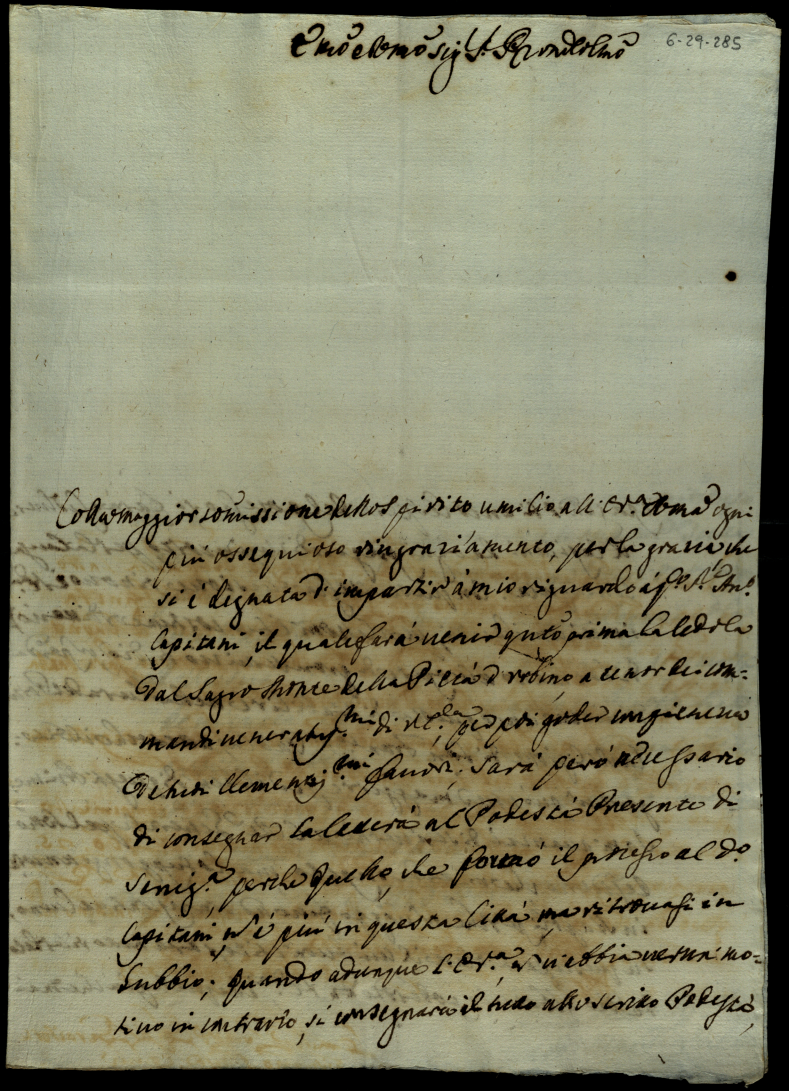 Emo e Rmo Sig.r Sig.r Pron Colmo
6-29-285
Colla maggior somissione dello spirito umilio all' E.V.a Rma ogni
più ossequioso ringraziamento, per la grazia che
si è degnata d' impartir à mio riguardo à q.to S.r Ant.o
Capitani, il quale farà venir q.nto prima la Cedola
dal Sagro Monte della Pietà d' Urbino, a tenor dei com-
mandi venerabi.mi di per poi goder
de di lei clementi.mi favori; Sarà però necessario
di consegnar la lettera al Podestà Presente di
Senig.a perche quello, che formò il processo al d.o
Capitani, n' è più in questa Città, ma ritrovasi in
Gubbio; quando adunque l' E.V.a n' v' abbia verun' mo-
tivo in contrario, si consegnarà il tutto allo scritto Podestà,